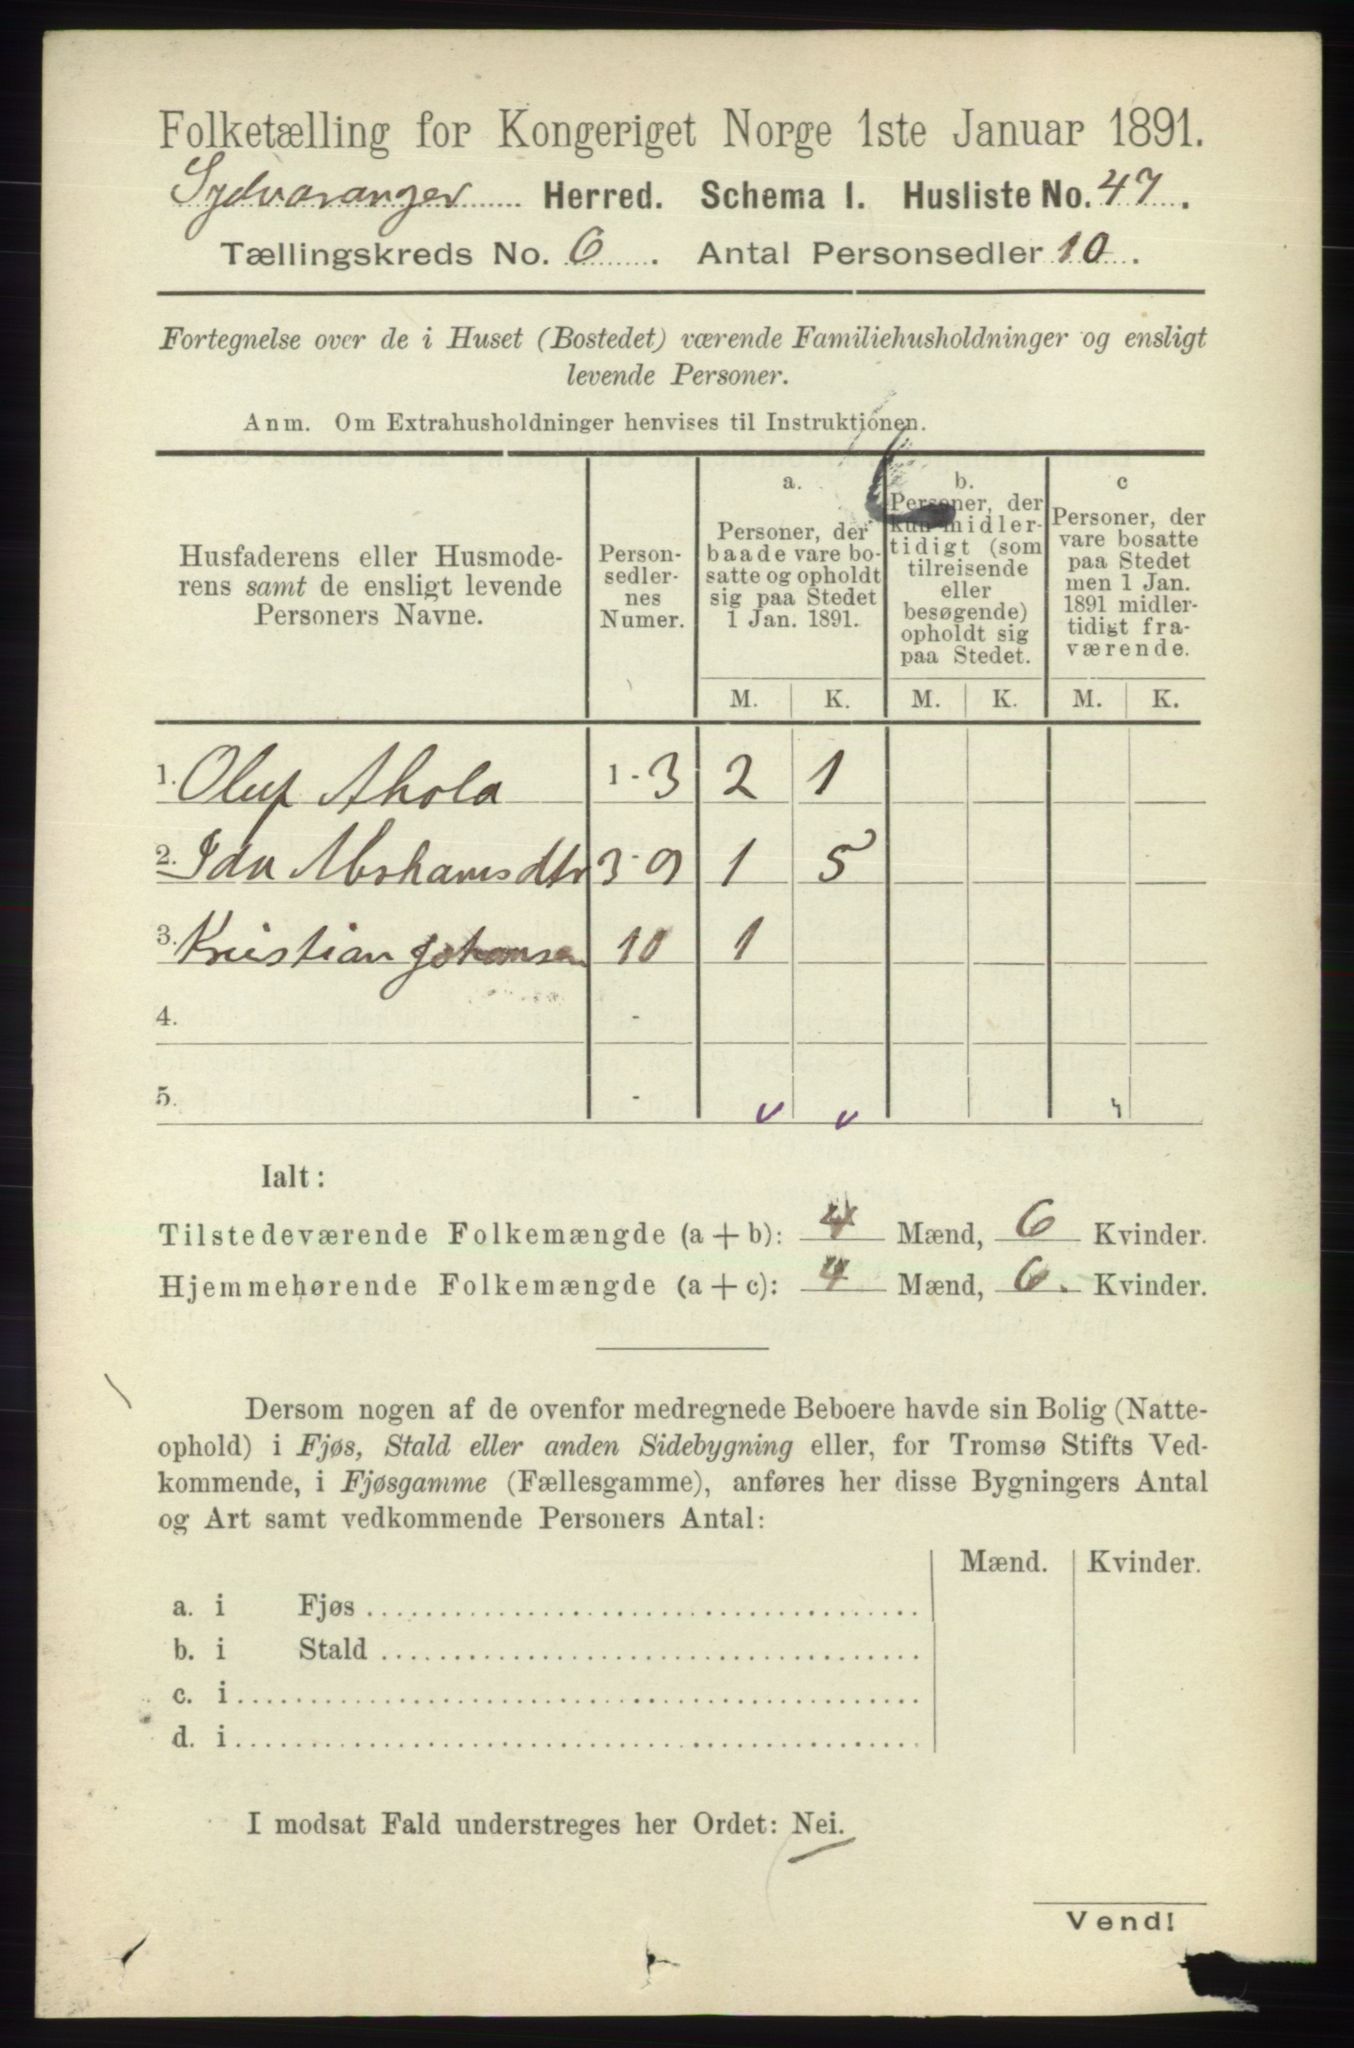 Folketælling for Kongeriget Norge 1ste Januar 1891.
Sydvaranger Herred. Schema I. Husliste No. 47.
Tællingskreds No. 6. Antal Personsedler 10.
Fortegnelse over de i Huset (Bostedet) værende Familiehusholdninger og ensligt
levende Personer.
Anm. Om Extrahusholdninger henvises til Instruktionen.
Husfaderens eller Husmode-
rens samt de ensligt levende
Personers Navne.
Person-
sedler-
nes
Numer.
a.
Personer, der
baade vare bo-
satte og opholdt
sig paa Stedet
1 Jan. 1891.
b.
Personer, der
kun midler-
tidigt (som
tilreisende
eller
besøgende)
opholdt sig
paa Stedet.
c
Personer, der
vare bosatte
paa Stedet
men 1 Jan.
1891 midler-
tidigt fra-
værende.
M. K. M. K. M. K.
1. Oluf Ahola 1-3 2 1
2. Ida Abrhamsdtr 3-9 1 5
3. Kristian Johansen 10 1
4. -
5. -
Ialt:
Tilstedeværende Folkemængde (a + b): 4 Mænd, 6 Kvinder.
Hjemmehørende Folkemængde (a + c): 4 Mænd, 6. Kvinder.
Dersom nogen af de ovenfor medregnede Beboere havde sin Bolig (Natte-
ophold) i Fjøs, Stald eller anden Sidebygning eller, for Tromsø Stifts Ved-
kommende, i Fjøsgamme (Fællesgamme), anføres her disse Bygningers Antal
og Art samt vedkommende Personers Antal:
Mænd. Kvinder.
a. i Fjøs
b. i Stald
c. i
d. i
I modsat Fald understreges her Ordet: Nei.
Vend!